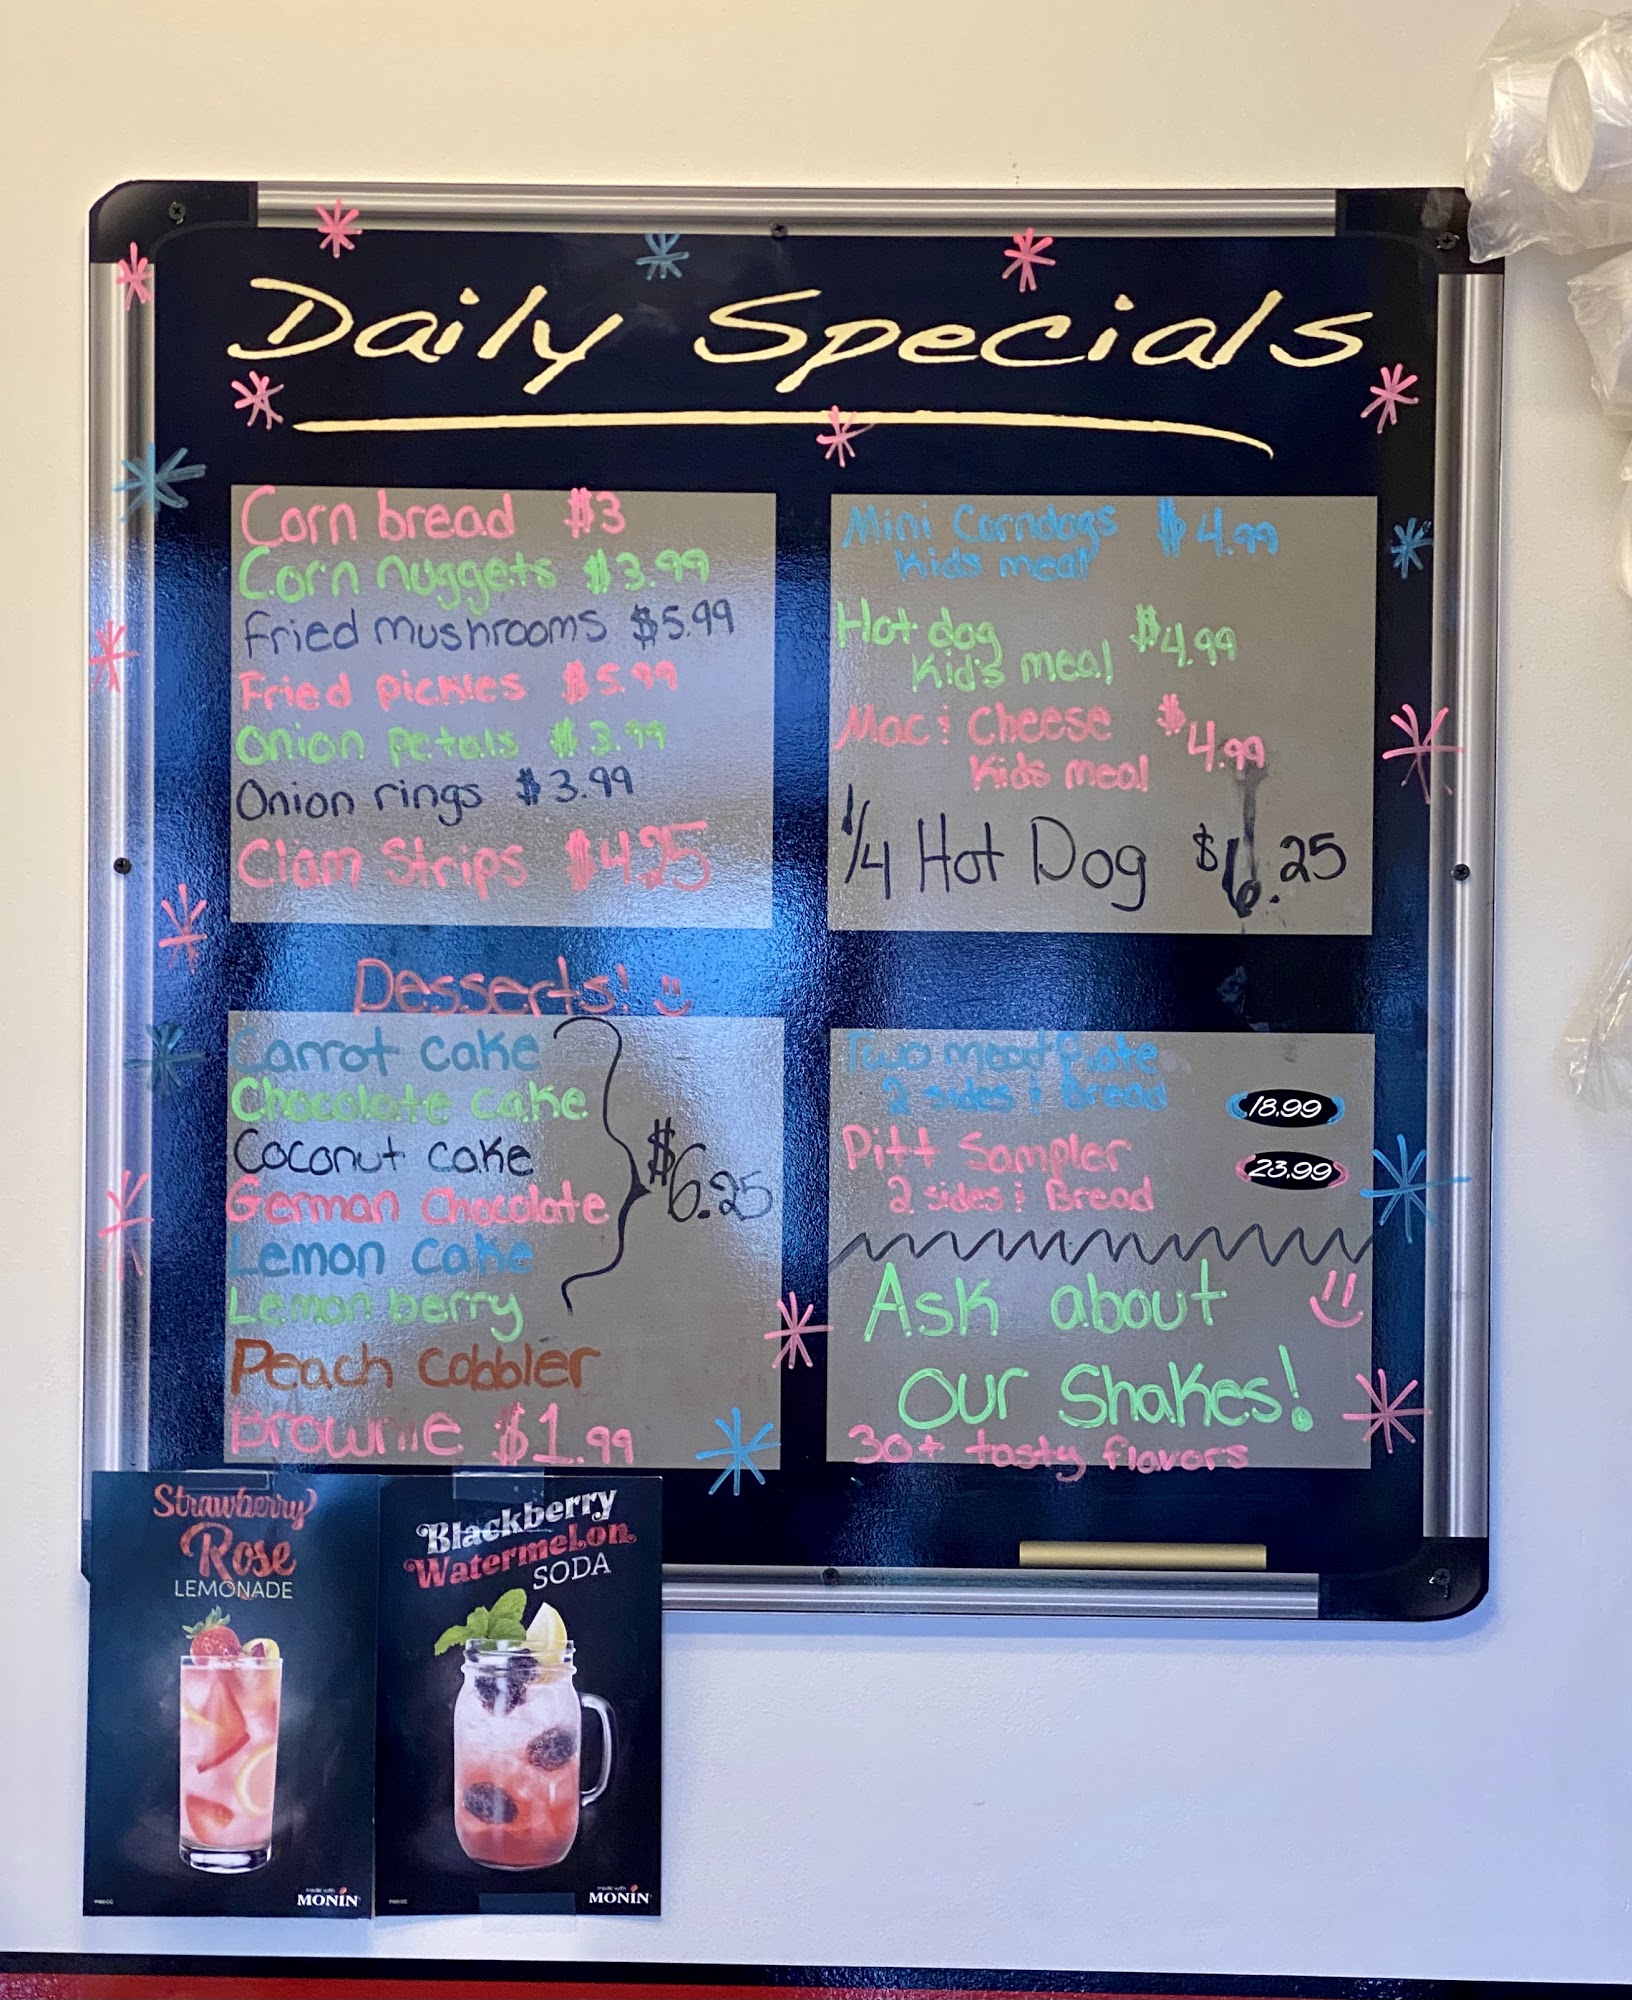 Daily Specials
Corn bread $3
Corn nuggets $3.99
Fried mushrooms $5.99
Fried pickles $5.99
Onion petals $3.99
Onion rings $3.99
Clam Strips $4.25
Mini Corndogs $4.99
Kids meal
Hot dog $4.99
Kid's meal
Mac & Cheese $4.99
Kids meal
1/4 Hot Dog $6.25
Desserts!
Carrot cake
Chocolate cake
Coconut cake
German Chocolate
Lemon cake
Lemon berry
$6.25
Peach cobbler
Brownie $1.99
Two meat Plate
2 sides & Bread 18.99
Pitt Sampler 23.99
2 sides & Bread
Ask about
our Shakes!
30+ tasty flavors
Strawberry
Rose
LEMONADE
made with
MONIN
Blackberry
Watermelon
SODA
made with
MONIN